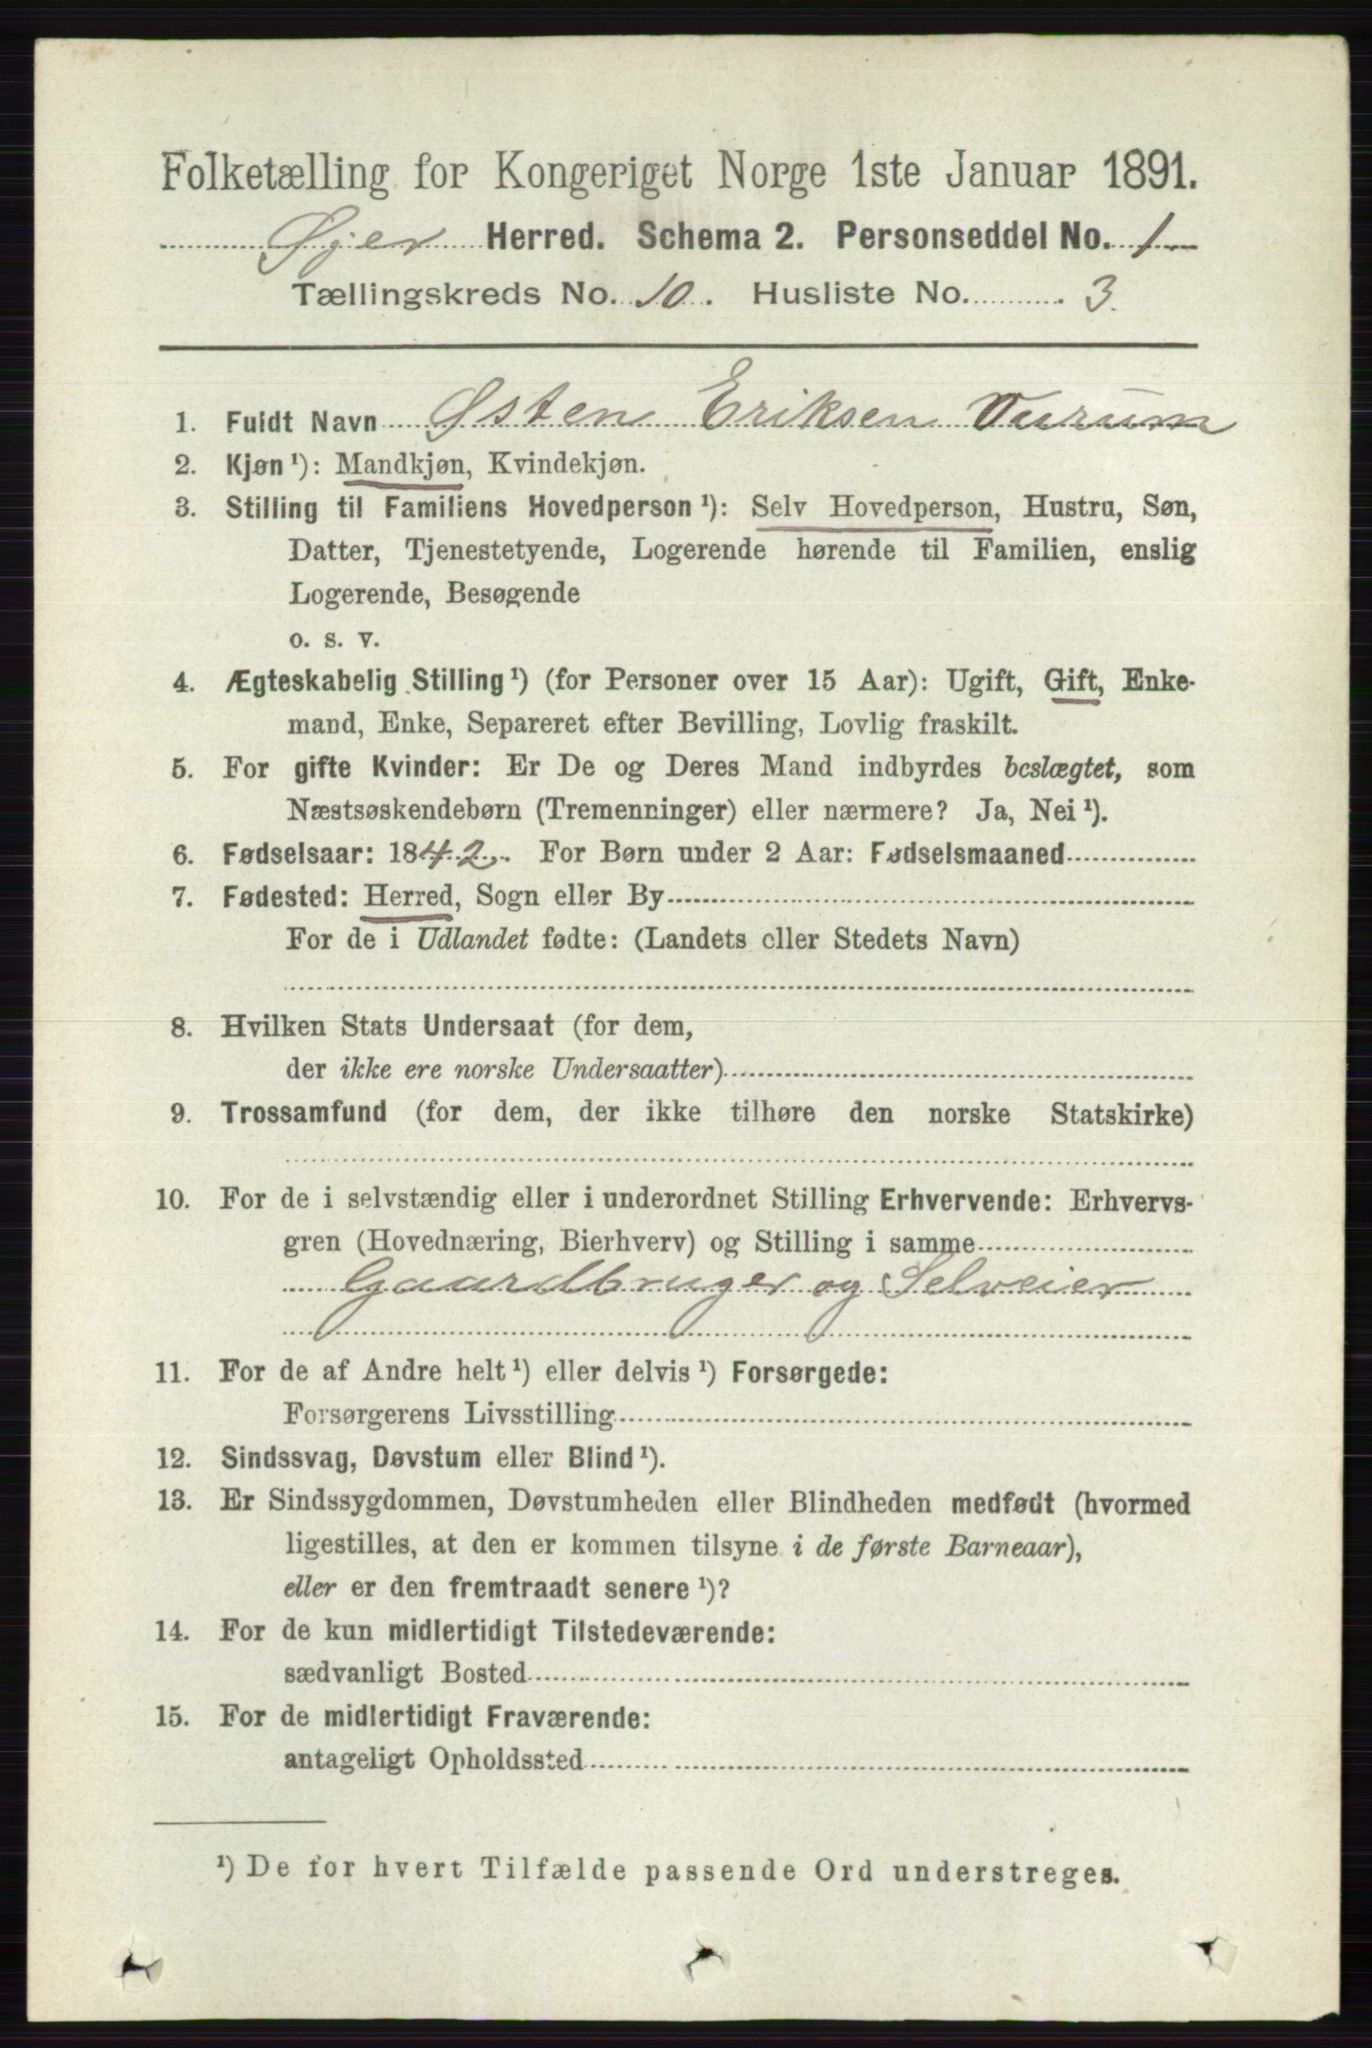 Folketælling for Kongeriget Norge 1ste Januar 1891.
Øjer Herred. Schema 2. Personseddel No. 1
Tællingskreds No. 10. Husliste No. 3.
1. Fuldt Navn Østen Eriksen Vurum
2. Kjøn ¹): Mandkjøn, Kvindekjøn.
3. Stilling til Familiens Hovedperson ¹): Selv Hovedperson, Hustru, Søn,
Datter, Tjenestetyende, Logerende hørende til Familien, enslig
Logerende, Besøgende
o. s. v.
4. Ægteskabelig Stilling ¹) (for Personer over 15 Aar): Ugift, Gift, Enke-
mand, Enke, Separeret efter Bevilling, Lovlig fraskilt.
5. For gifte Kvinder: Er De og Deres Mand indbyrdes beslægtet, som
Næstsøskendebørn (Tremenninger) eller nærmere? Ja, Nei ¹).
6. Fødselsaar: 1842. For Børn under 2 Aar: Fødselsmaaned
7. Fødested: Herred, Sogn eller By
For de i Udlandet fødte: (Landets eller Stedets Navn)
8. Hvilken Stats Undersaat (for dem,
der ikke ere norske Undersaatter)
9. Trossamfund (for dem, der ikke tilhøre den norske Statskirke)
10. For de i selvstændig eller i underordnet Stilling Erhvervende: Erhvervs-
gren (Hovednæring, Bierhverv) og Stilling i samme
Gaardbruger og Selveier
11. For de af Andre helt ¹) eller delvis ¹) Forsørgede:
Forsørgerens Livsstilling
12. Sindssvag, Døvstum eller Blind ¹).
13. Er Sindssygdommen, Døvstumheden eller Blindheden medfødt (hvormed
ligestilles, at den er kommen tilsyne i de første Barneaar),
eller er den fremtraadt senere ¹)?
14. For de kun midlertidigt Tilstedeværende:
sædvanligt Bosted
15. For de midlertidigt Fraværende:
antageligt Opholdssted
¹) De for hvert Tilfælde passende Ord understreges.